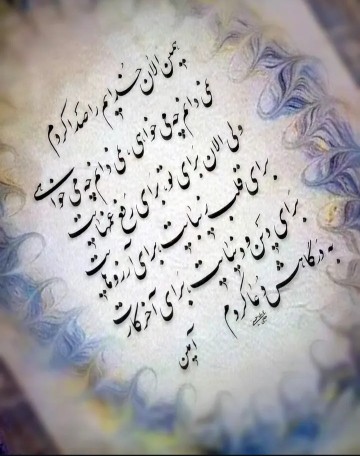 همین الان خدایم را صدا کردم
نمی دانم چه می خواهی، نمی دانم چه می خواهی
ولی الان برای تو، برای رفع غمهایت
برای قلب زیبایت برای آرزوهایت
برای دین و دنیایت برای آخرتهایت
به درگاهش دعا کردم
آمین